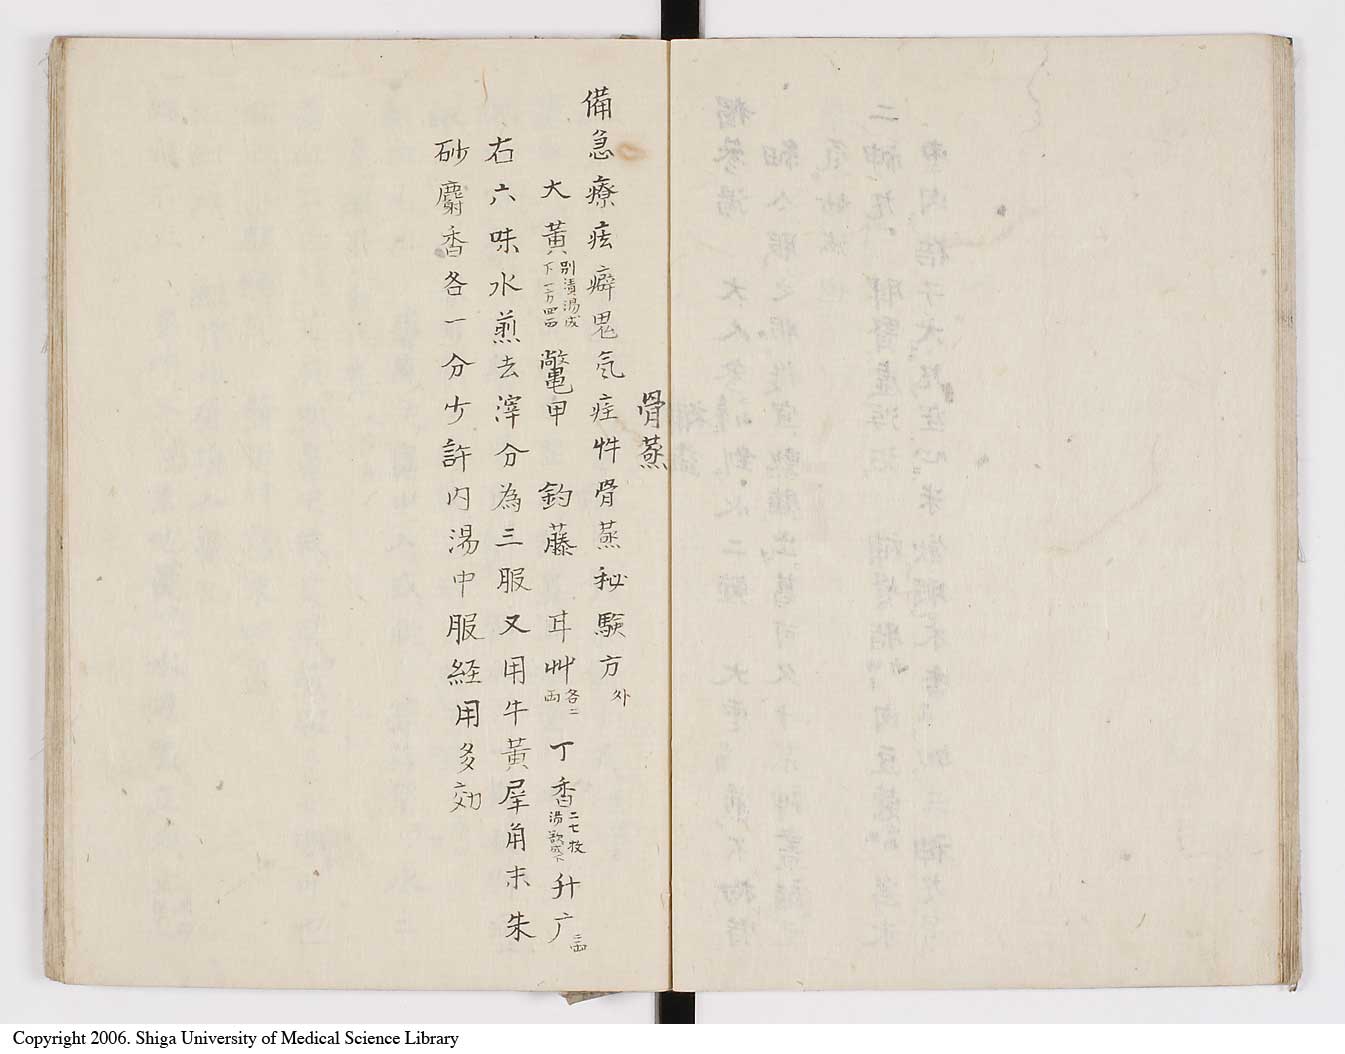 骨蒸
備急療痃癖鬼気疰忤骨蒸秘験方 外
大黄 別漬湯成下一方四両 鼈甲 釣藤 耳艸 各二両 丁香 二七枚湯欲成下 升广 三両
右六味水煎去滓分為三服又用牛黄犀角末朱
砂麝香各一分少許内湯中服経用多効
Copyright 2006. Shiga University of Medical Science Library